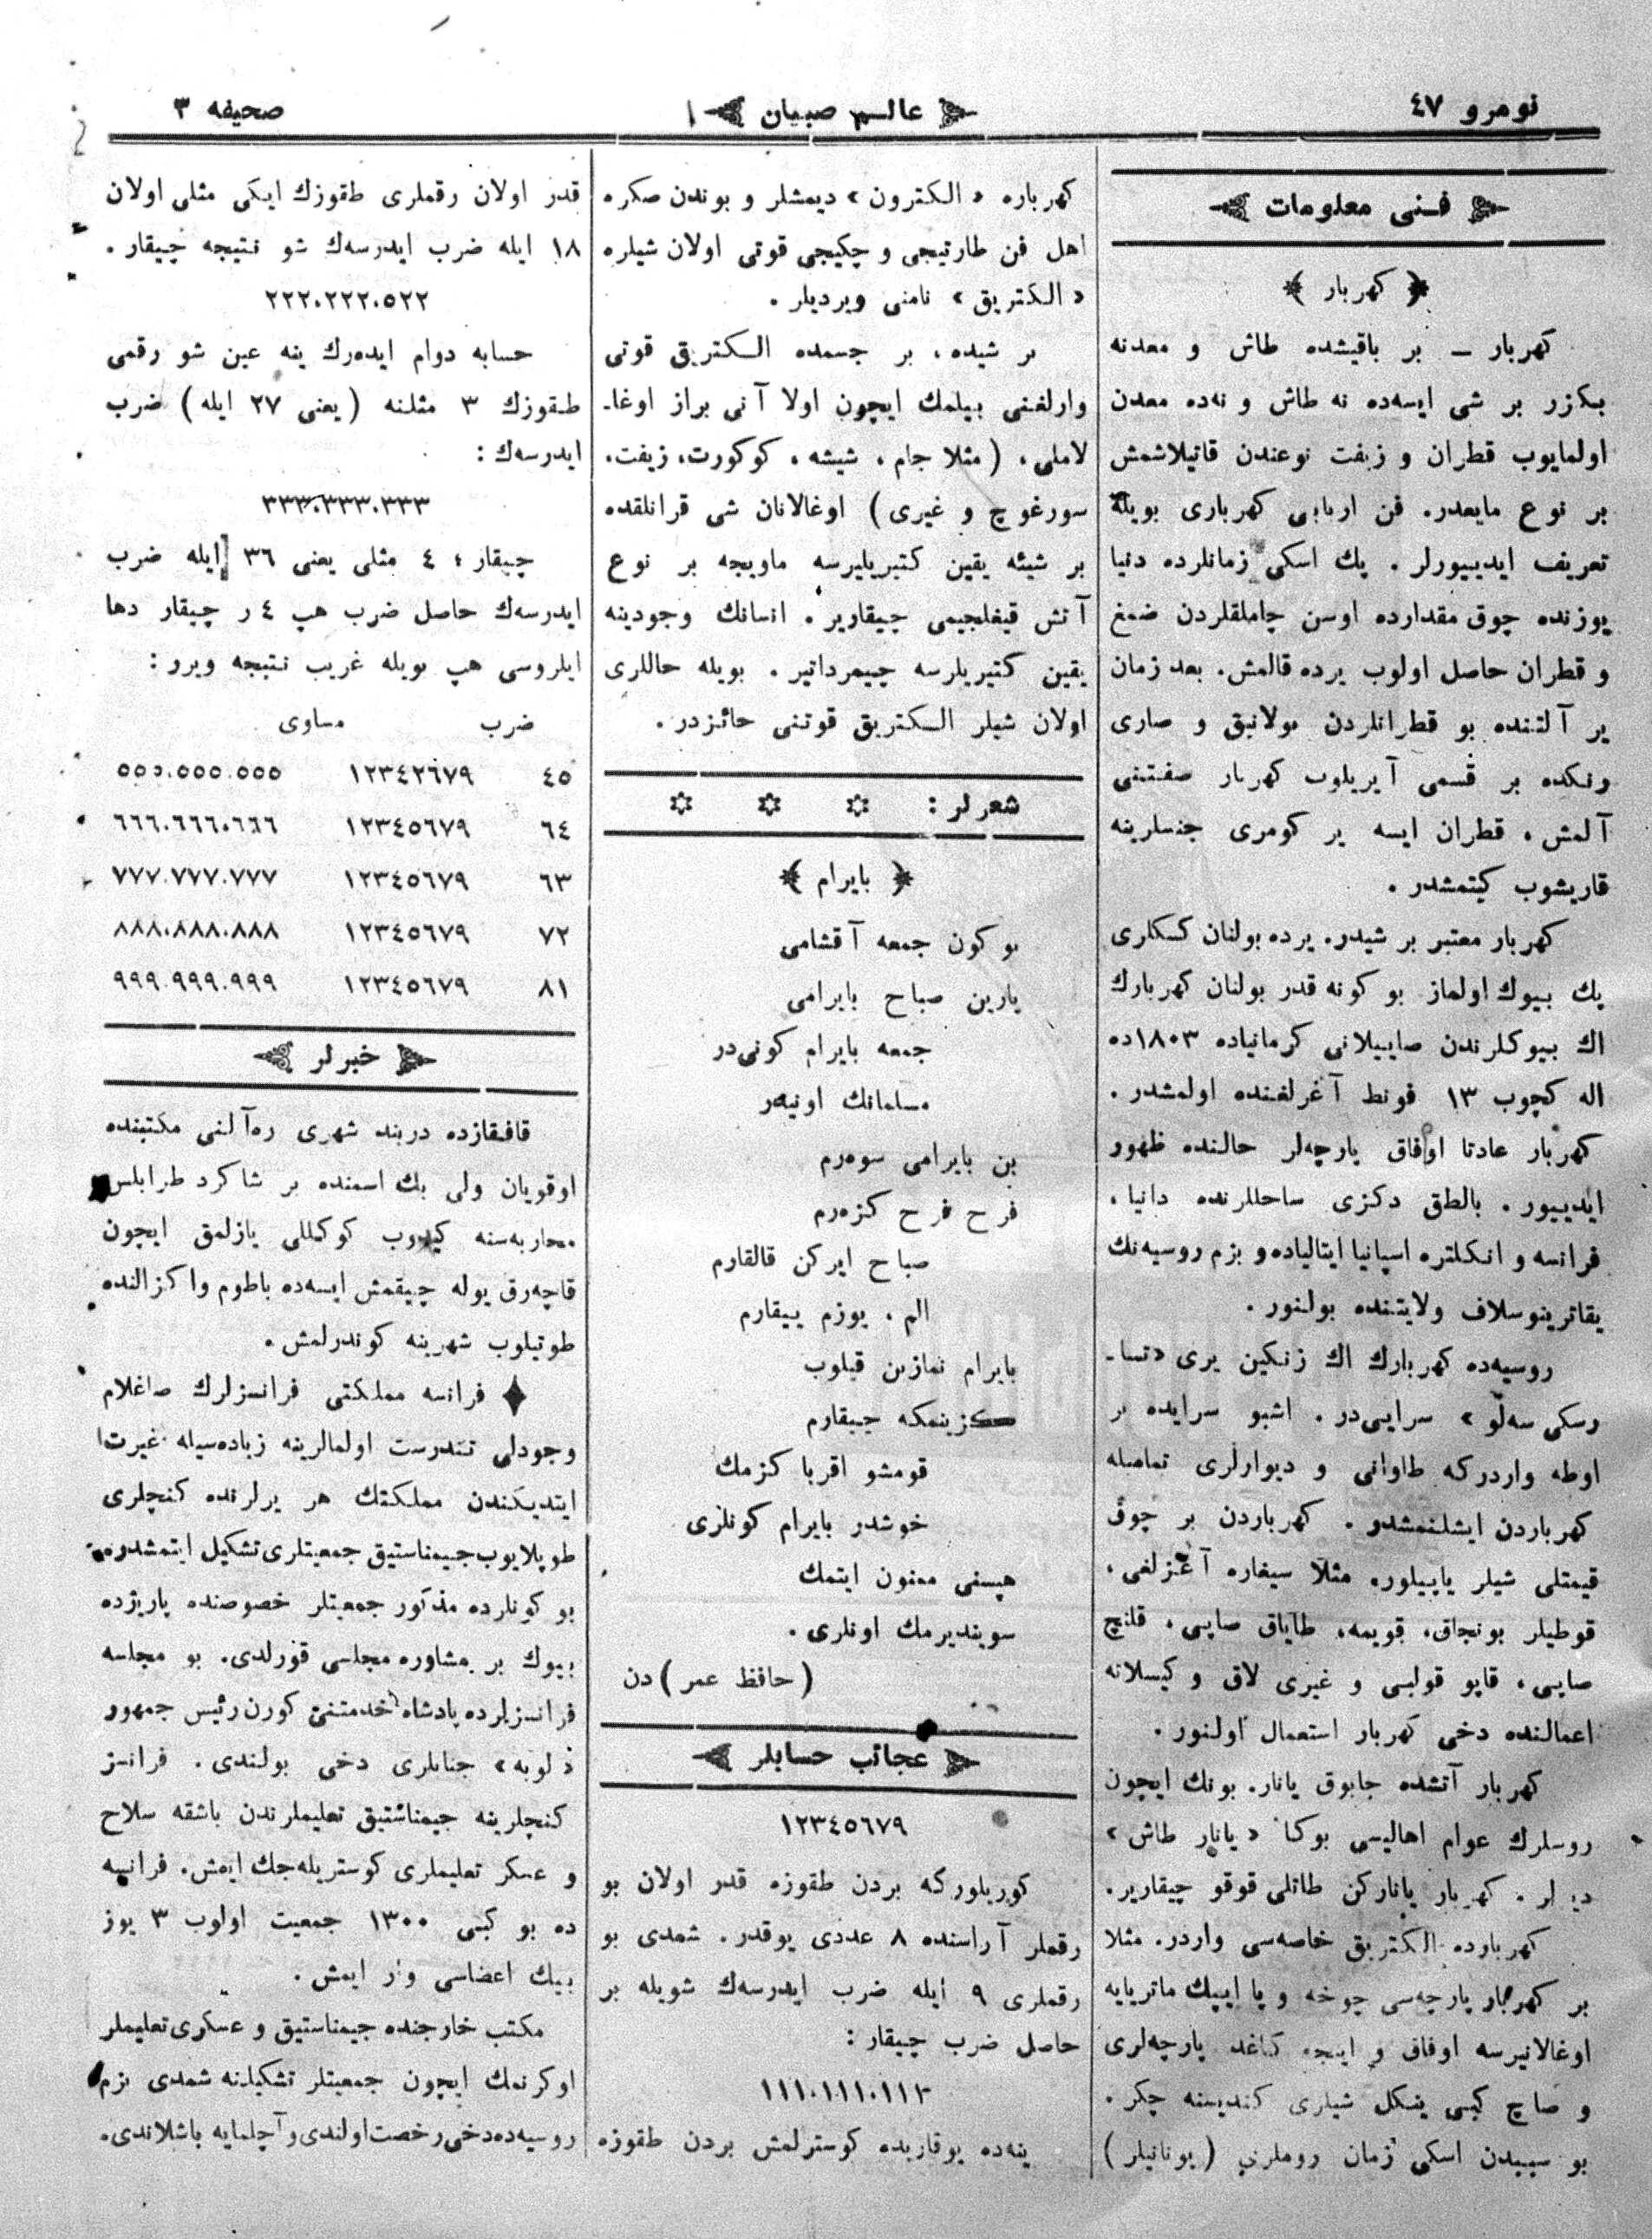 نومرو ٤٧
عالم صبیان
صحیفه ٣
فنی معلومات
﴿ كهربار ﴾
كهربار ــ بر باقیشده طاش و معدنه
بكزر بر شی ایسه‌ده نه طاش و نه‌ده معدن
اولمایوب قطران و زفت نوعندن قاتیلاشمش
بر نوع مایعدر. فن اربابی كهرباری بویله
تعریف ایدییورلر . پك اسكی زمانلرده دنیا
یوزنده چوق مقدارده اوسن چاملقلردن ضمغ
و قطران حاصل اولوب یرده قالمش. بعد زمان
یر آلتنده بو قطرانلردن بولانیق و صاری
رنكده بر قسمی آیریلوب كهربار صفتنی
آلمش ، قطران ایسه یر كومری جنسلرینه
قاریشوب كیتمشدر .
كهربار معتبر بر شیدر. یرده بولنان كسكلری
پك بیوك اولماز بو كونه قدر بولنان كهربارك
اك بیوكلرندن صاییلانی كرمانیاده ١٨٠٣ده
اله كچوب ١٣ فونط آغرلغنده اولمشدر .
كهربار عادتا اوفاق پارچه‌لر حالنده ظهور
ایدییور . بالطق دكزی ساحللرنده دانیا ،
فرانسه و انكلتره اسپانیا ایتالیاده و بزم روسیه‌نك
یقاترینوسلاف ولایتنده بولنور .
روسیه‌ده كهربارك اك زنكین یری «تسا ـ
رسكی سه‌لو» سرایی‌در . اشبو سرایده بر
اوطه واردركه طاوانی و دیوارلری تماصله
كهرباردن ایشلنمشدر . كهرباردن بر چوق
قیمتلی شیلر یاپیلور. مثلا سیغاره آغزلغی ،
قوطیلر بونجاق، قویمه، طایاق صاپی، قلنچ
صاپی ، قاپو قولبی و غیری لاق و كیسلانه
اعمالنده دخی كهربار استعمال اولنور .
كهربار آتشده چابوق یانار. بونك ایچون
روسلرك عوام اهالیسی بوكا «یانار طاش»
دیرلر . كهربار یاناركن طاتلی قوقو چیقاریر.
كهربارده الكتریق خاصه‌سی واردر. مثلا
بر كهربار پارچه‌سی چوخه و یا ایپك ماتریایه
اوغالانیرسه اوفاق و اینجه كاغد پارچه‌لری
و صاچ كبی ینكل شیلری كندیسنه چكر .
بو سببدن اسكی زمان روملری (یونانیلر)
كهرباره «الكترون» دیمشلر و بوندن صكره
اهل فن طارتیجی و چكیجی قوتی اولان شیلره
«الكتریق» نامنی ویردیلر .
بر شیده ، بر جسمده الكتریق قوتی
وارلغنی بیلمك ایچون اولا آنی براز اوغا ـ
لاملی ، (مثلا جام ، شیشه ، كوكورت، زیفت،
سورغوچ و غیری) اوغالانان شی قرانلقده
بر شیئه یقین كتیریلیرسه ماویجه بر نوع
آتش قیغلجیمی چیقاریر . انسانك وجودینه
یقین كتیریلرسه چیمرداتیر . بویله حاللری
اولان شیلر الكتریق قوتنی حائزدر .
شعرلر :
﴿ بایرام ﴾
بو كون جمعه آقشامی
یارین صباح بایرامی
جمعه بایرام كونی‌در
مسلمانك اونیدر
بن بایرامی سوه‌رم
فرح فرح كزه‌رم
صباح ایركن قالقارم
الم ، یوزم ییقارم
بایرام نمازین قیلوب
كزینمكه چیقارم
قومشو اقربا كزمك
خوشدر بایرام كونلری
هپسنی ممنون ایتمك
سویندیرمك اونلری .
(حافظ عمر) دن
عجائب حسابلر
١٢٣٤٥٦٧٩
كوریلوركه بردن طقوزه قدر اولان بو
رقملر آراسنده ٨ عددی یوقدر . شمدی بو
رقملری ٩ ایله ضرب ایدرسه‌ك شویله بر
حاصل ضرب چیقار :
١١١.١١١.١١١
ینه‌ده یوقاریده كوسترلمش بردن طقوزه
قدر اولان رقملری طقوزك ایكی مثلی اولان
١٨ ایله ضرب ایدرسه‌ك شو نتیجه چیقار .
٢٢٢.٢٢٢.٥٢٢
حسابه دوام ایده‌رك ینه عین شو رقمی
طقوزك ٣ مثلنه (یعنی ٢٧ ایله) ضرب
ایدرسه‌ك :
٣٣٣.٣٣٣.٣٣٣
چیقار ؛ ٤ مثلی یعنی ٣٦ ایله ضرب
ایدرسه‌ك حاصل ضرب هپ ٤ ر چیقار دها
ایلروسی هپ بویله غریب نتیجه ویرر :
ضرب مساوی
٤٥ ١٢٣٤٢٦٧٩ ٥٥٥.٥٥٥.٥٥٥
٦٤ ١٢٣٤٥٦٧٩ ٦٦٦.٦٦٦.٦٦٦
٦٣ ١٢٣٤٥٦٧٩ ٧٧٧.٧٧٧.٧٧٧
٧٢ ١٢٣٤٥٦٧٩ ٨٨٨.٨٨٨.٨٨٨
٨١ ١٢٣٤٥٦٧٩ ٩٩٩.٩٩٩.٩٩٩
خبرلر
قافقازده دربند شهری ره‌آلنی مكتبنده
اوقویان ولی بك اسمنده بر شاكرد طرابلس
محاربه‌سنه كیدوب كوكللی یازلمق ایچون
قاچه‌رق یوله چیقمش ایسه‌ده باطوم واكزالنده
طوتیلوب شهرینه كوندرلمش .
فرانسه مملكتی فرانسزلرك صاغلام
وجودلی تندرست اولمالرینه زیاده‌سیله غیرت
ایتدیكندن مملكتك هر یرلرنده كنجلری
طوپلایوب جیمناستیق جمعیتلری تشكیل ایتمشدر.
بو كونلرده مذكور جمعیتلر خصوصنده پاریژده
بیوك بر مشاوره مجلسی قورلدی. بو مجلسه
فرانسزلرده پادشاه خدمتنی كورن رئیس جمهور
لوبه» جنابلری دخی بولندی . فرانسز
كنجلرینه جیمناستیق تعلیملرندن باشقه سلاح
و عسكر تعلیملری كوستریله‌جك ایمش. فرانسه
ده بو كبی ١٣٠٠ جمعیت اولوب ٣ یوز
بیك اعضاسی وار ایمش .
مكتب خارجنده جیمناستیق و عسكری تعلیملر
اوكرنمك ایچون جمعیتلر تشكیلنه شمدی بزم
روسیه‌ده دخی رخصت اولندی و آچلمایه باشلاندی.